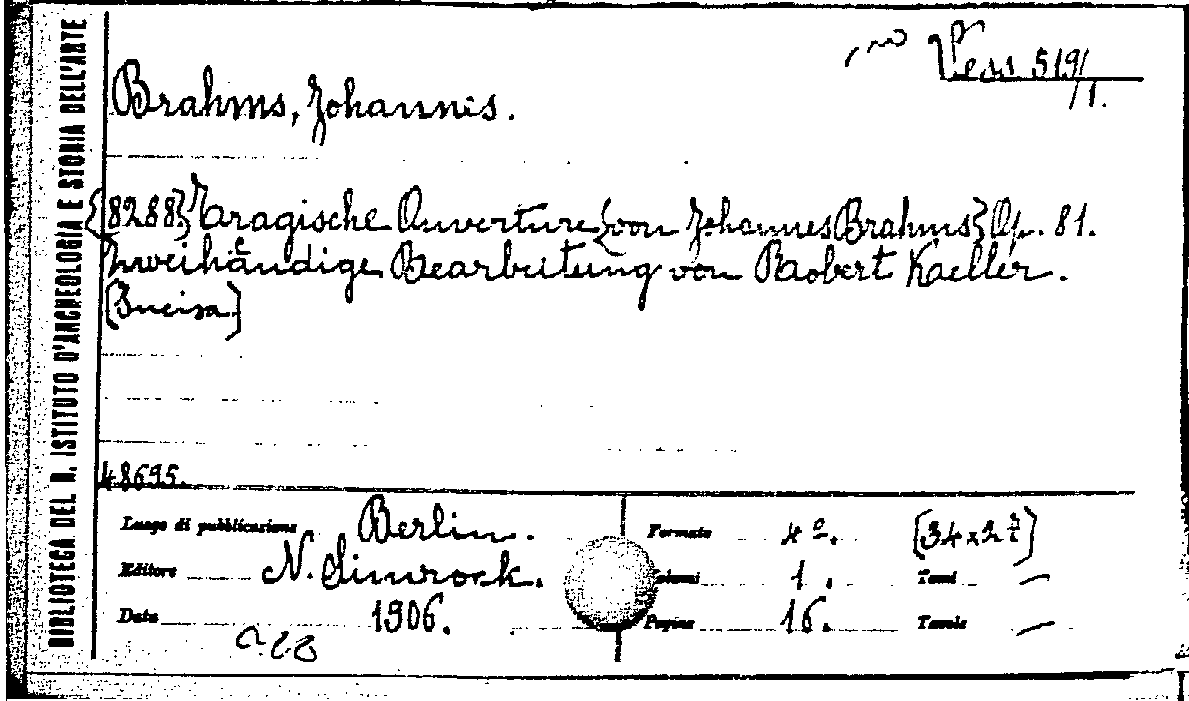 BIBLIOTECA DEL R. ISTITUTO D'ARCHEOLOGIA E STORIA DELL'ARTE
Vess 519/1.
Brahms, Johannes.
{8288} Tragische Ouverture {von Johannes Brahms} Op. 81.
Zweihändige Bearbeitung von Robert Kaeller.
[Incisa]
48695.
Luogo di pubblicazione Berlin. Formato 4º. [34x27]
Editore N. Simrock. Volumi 1. Tomi —
Data 1906. Pagine 16. Tavole —